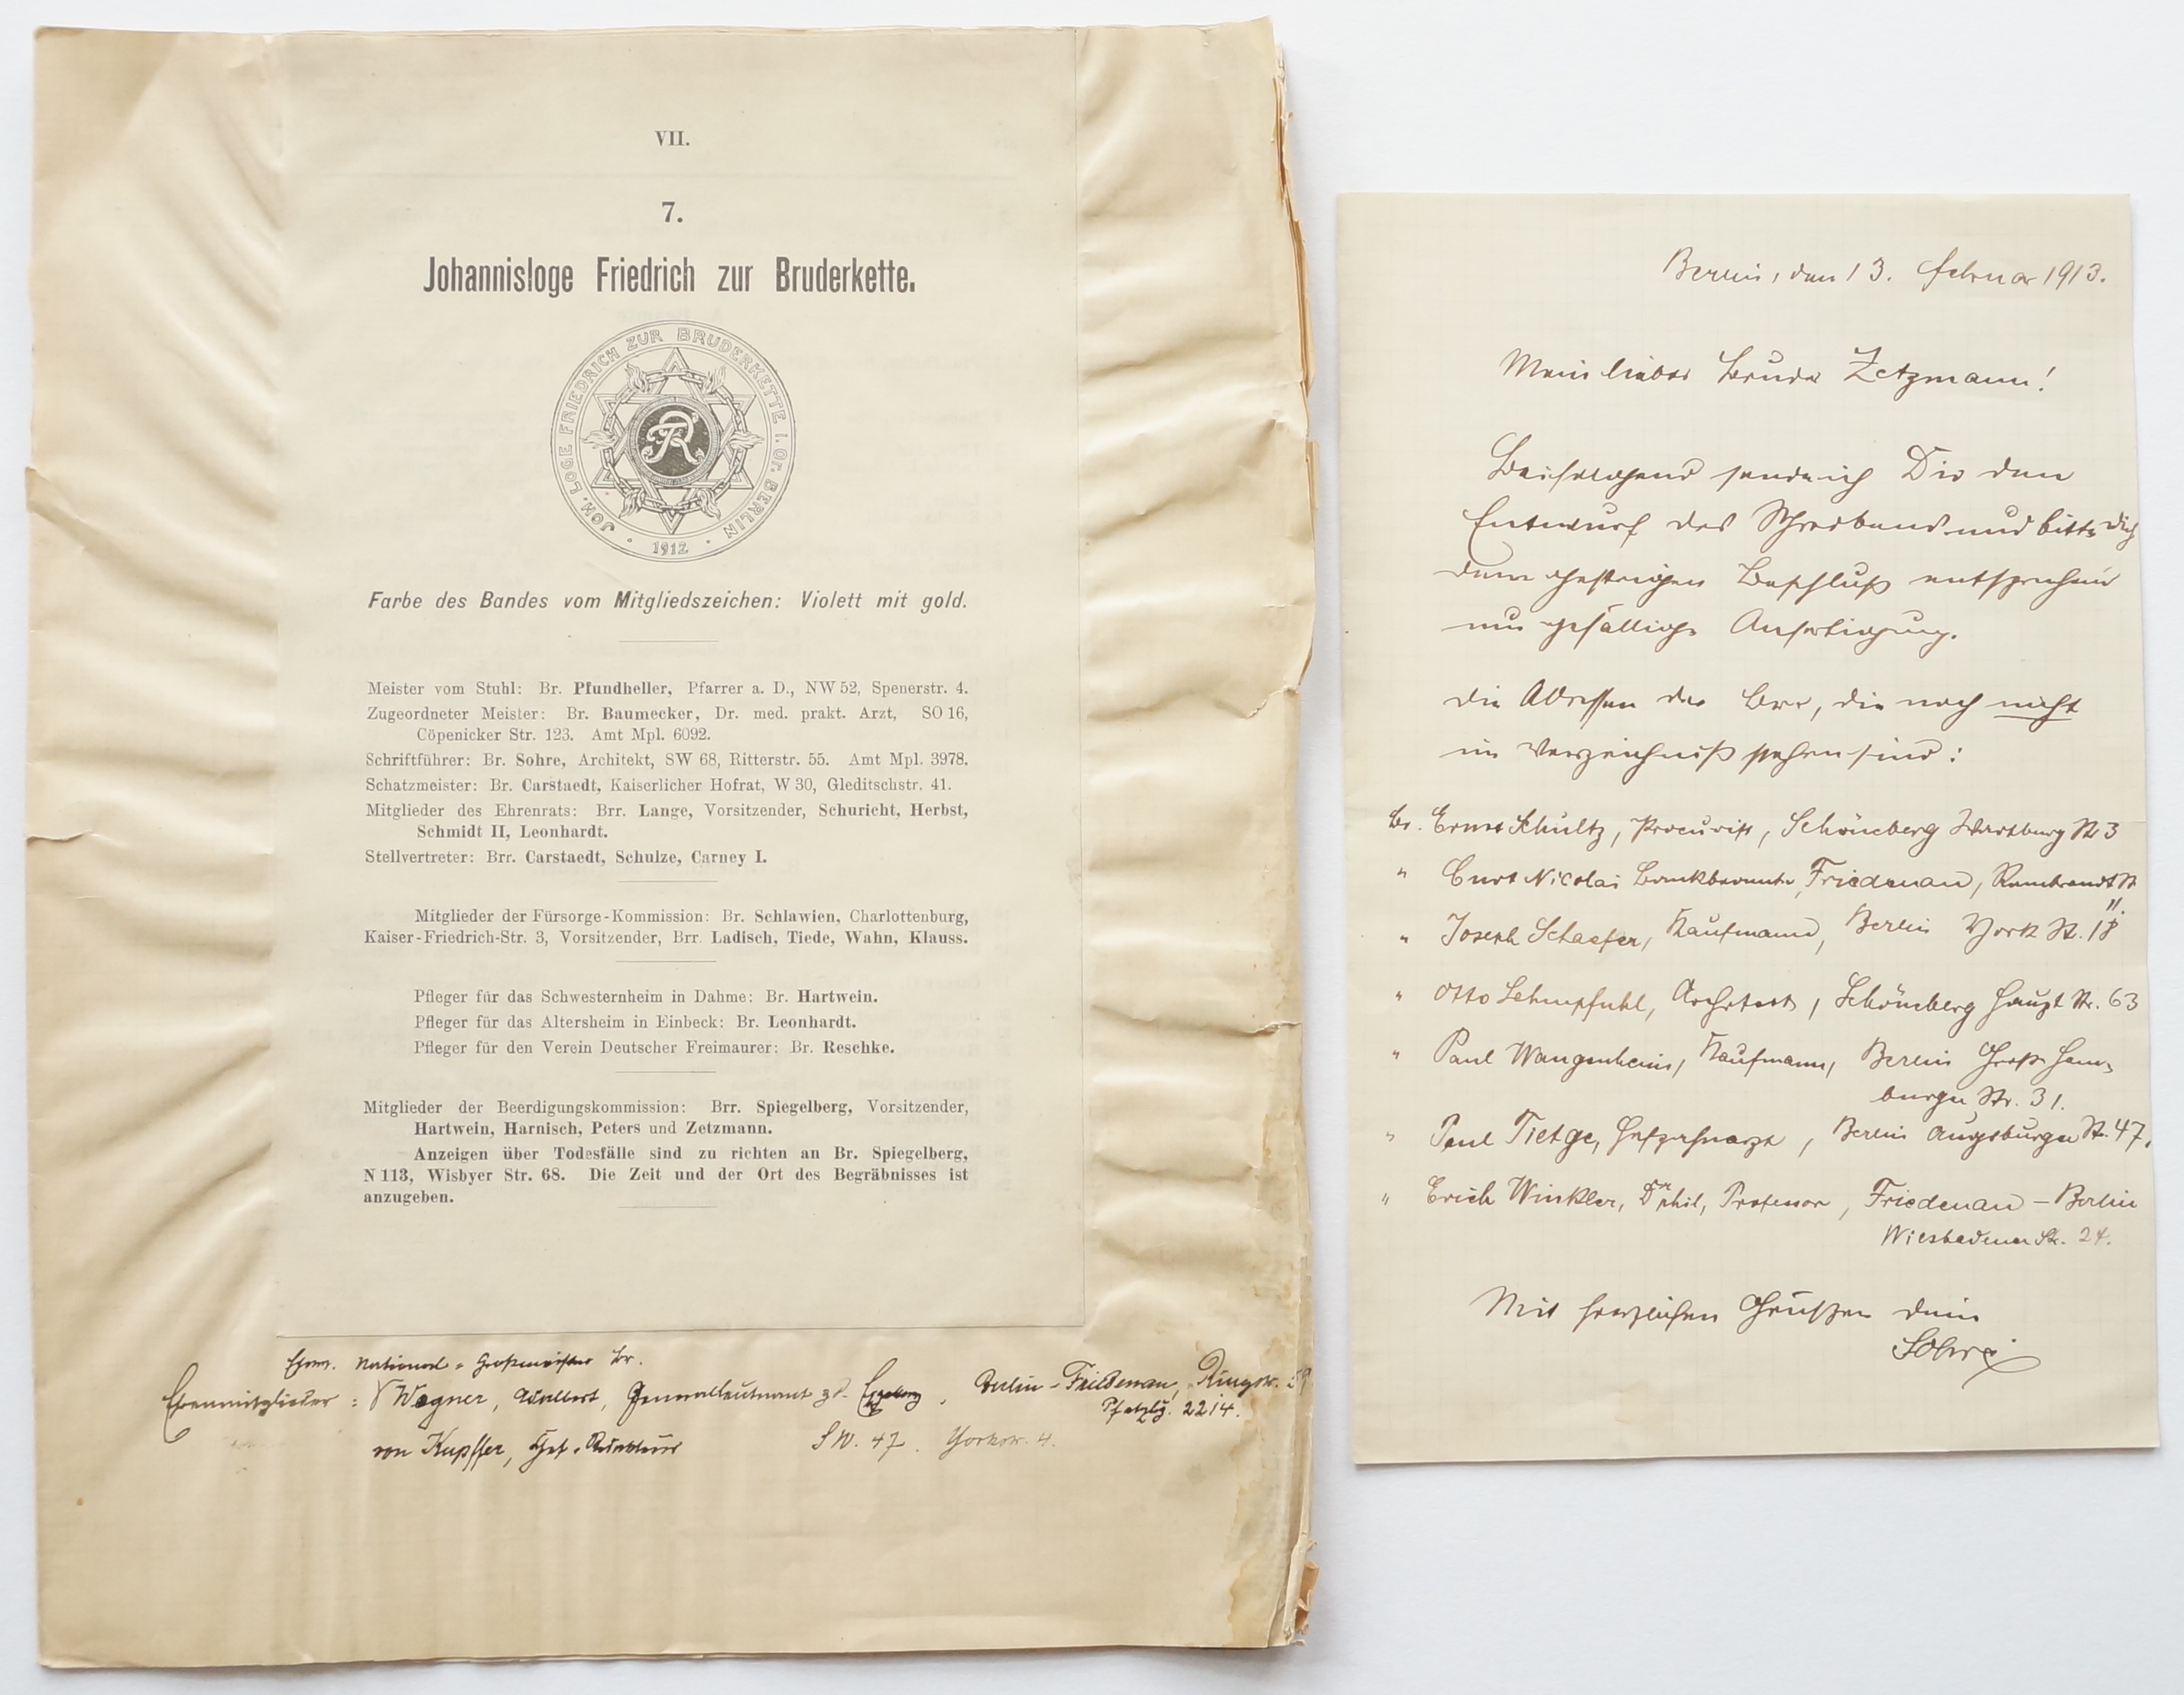 VII.
7.
Johannisloge Friedrich zur Bruderkette.
JOH. LOGE FRIEDRICH ZUR BRUDERKETTE I. Or. BERLIN
· 1912 ·
Farbe des Bandes vom Mitgliedszeichen: Violett mit gold.
Meister vom Stuhl: Br. Pfundheller, Pfarrer a. D., NW 52, Spenerstr. 4.
Zugeordneter Meister: Br. Baumecker, Dr. med. prakt. Arzt, SO 16,
Cöpenicker Str. 123. Amt Mpl. 6092.
Schriftführer: Br. Sohre, Architekt, SW 68, Ritterstr. 55. Amt Mpl. 3978.
Schatzmeister: Br. Carstaedt, Kaiserlicher Hofrat, W 30, Gleditschstr. 41.
Mitglieder des Ehrenrats: Brr. Lange, Vorsitzender, Schuricht, Herbst,
Schmidt II, Leonhardt.
Stellvertreter: Brr. Carstaedt, Schulze, Carney I.
Mitglieder der Fürsorge-Kommission: Br. Schlawien, Charlottenburg,
Kaiser-Friedrich-Str. 3, Vorsitzender, Brr. Ladisch, Tiede, Wahn, Klauss.
Pfleger für das Schwesternheim in Dahme: Br. Hartwein.
Pfleger für das Altersheim in Einbeck: Br. Leonhardt.
Pfleger für den Verein Deutscher Freimaurer: Br. Reschke.
Mitglieder der Beerdigungskommission: Brr. Spiegelberg, Vorsitzender,
Hartwein, Harnisch, Peters und Zetzmann.
Anzeigen über Todesfälle sind zu richten an Br. Spiegelberg,
N 113, Wisbyer Str. 68. Die Zeit und der Ort des Begräbnisses ist
anzugeben.
National-Großmeister Br.
Ehrenmitglieder: Wegner, Adalbert, Generalleutnant z. D. Berlin-Friedenau, Ringstr.
Pfalzbg. 2214.
von Kupffer, Chef-Redakteur SW. 47. Yorkstr. 4.
Berlin, den 13. Februar 1913.
Mein lieber Bruder Zetzmann!
Beifolgend sende ich Dir den
Entwurf des Schreibens und bitte Dich
dem gestrigen Beschluß entsprechend
um gefällige Anfertigung.
Die Adressen der Brr, die noch nicht
im Verzeichniß stehen sind:
Br. Ernst Schultz, Procurist, Schöneberg Wartburg Str 3
" Curt Nicolai Bankbeamter, Friedenau, Rembrandt Str
11.
" Joseph Schaefer, Kaufmann, Berlin York Str. 18
" Otto Lehmpfuhl, Architect, Schöneberg Haupt Str. 63
" Paul Wangenheim, Kaufmann, Berlin Groß Ham-
burger Str. 31.
" Paul Tietge, Hofzahnarzt, Berlin Augsburger Str. 47.
" Erich Winkler, Dr phil, Professor, Friedenau - Berlin
Wiesbadener Str. 24.
Mit herzlichen Grüßen Dein
Sohre